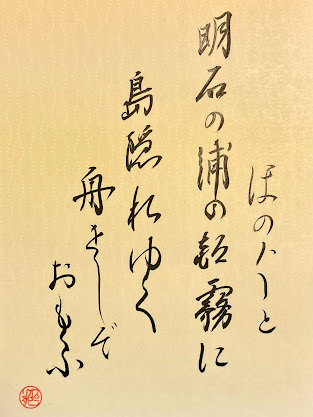 ほの〱と
明石の浦の朝霧に
島隠れゆく
舟をしぞ
おもふ